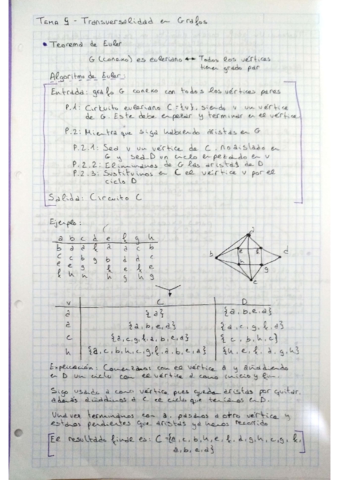 Tema 5 - Transversalidad en Grafos
• Teorema de Euler
G (conexo) es euleriano ↔ Todos los vértices
tienen grado par
Algoritmo de Euler:
Entrada: grafo G conexo con todos los vértices pares
P.1: Circuito euleriano C={v}, siendo v un vértice
de G. Este debe empezar y terminar en el vértice.
P.2: Mientras que siga habiendo aristas en G
P.2.1: Sea v un vértice de C, no aislado en
G y sea D un ciclo empezando en v
P.2.2: Eliminamos de G las aristas de D
P.2.3: Sustituimos en C el vértice v por el
ciclo D
Salida: Circuito C
Ejemplo:
a b c d e f g h
v C D
a {a} {a,b,e,a}
a {a,b,e,a} {a,c,g,f,a}
c {a,c,g,f,a,b,e,a} {c,b,h,c}
h {a,c,b,h,c,g,f,a,b,e,a} {h,e,f,d,g,h}
Explicación: Comenzamos con el vértice a y añadiendo
en D un ciclo con el vértice a como inicio y fin.
Sigo usando a como vértice pues quedan aristas por quitar,
además añadimos a C el ciclo que tenemos en D.
Una vez terminamos con a, pasamos a otro vértice y
estamos pendientes que aristas ya hemos recorrido
El resultado final es: C={a,c,b,h,e,f,d,g,h,c,g,f,
a,b,e,a}